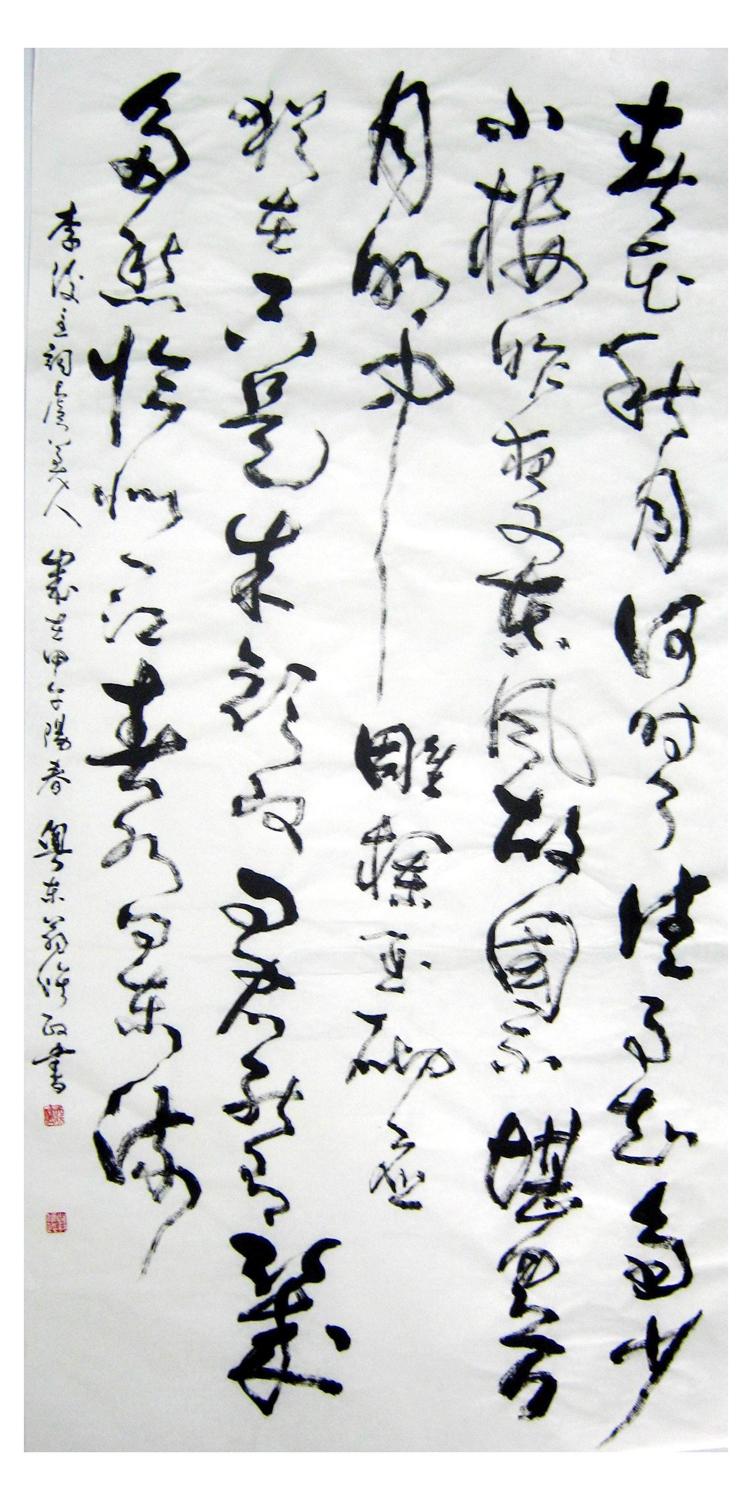 春花秋月何时了往事知多少
小樓昨夜又东風故國不堪回首
月明中雕欄玉砌应
猶在只是朱顔改问君能有幾
多愁恰似一江春水向东流
李後主詞虞美人 歲在甲午陽春 粤东翁书